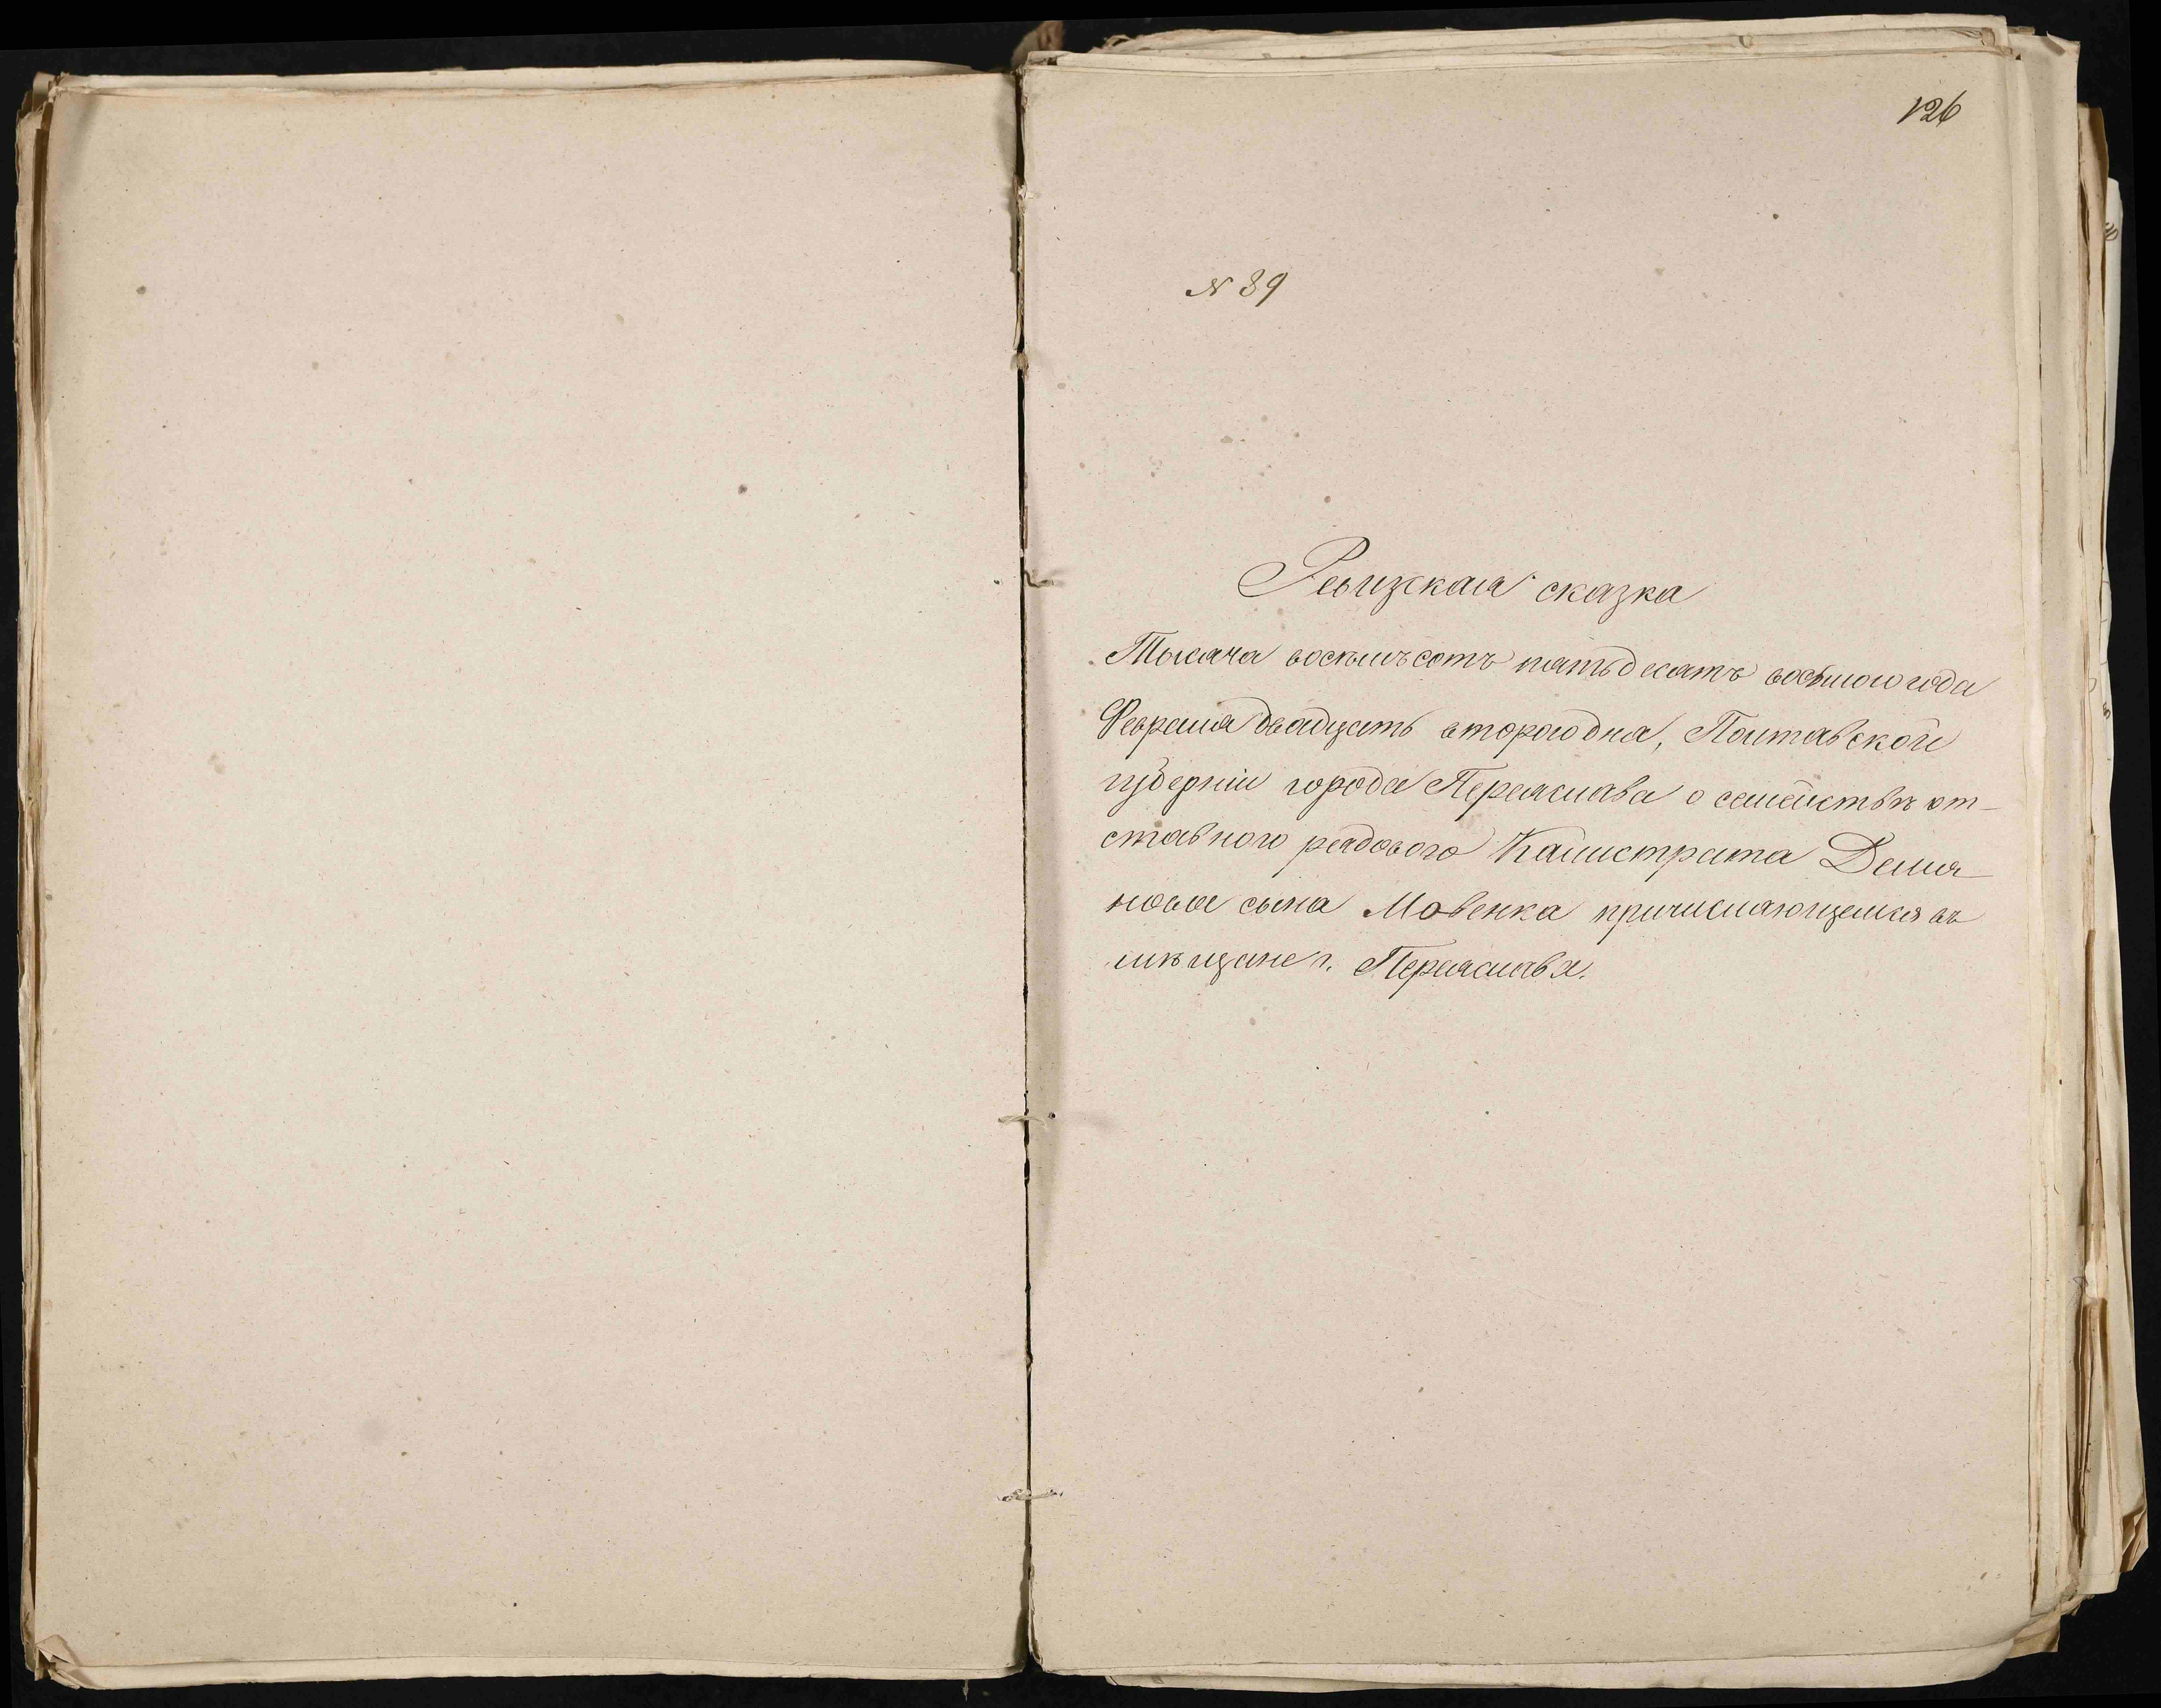 126
N 89
Ревизская сказка
Тысяча восемьсотъ пятьдесятъ восьмого года
Февраля двадцать второго дня, Полтавской
губерніи города Переяслава о семействѣ от-
ставного рядового Калистрата Демья-
нова сына Мовенка причисляющемся въ
мѣщане г. Переяслава.